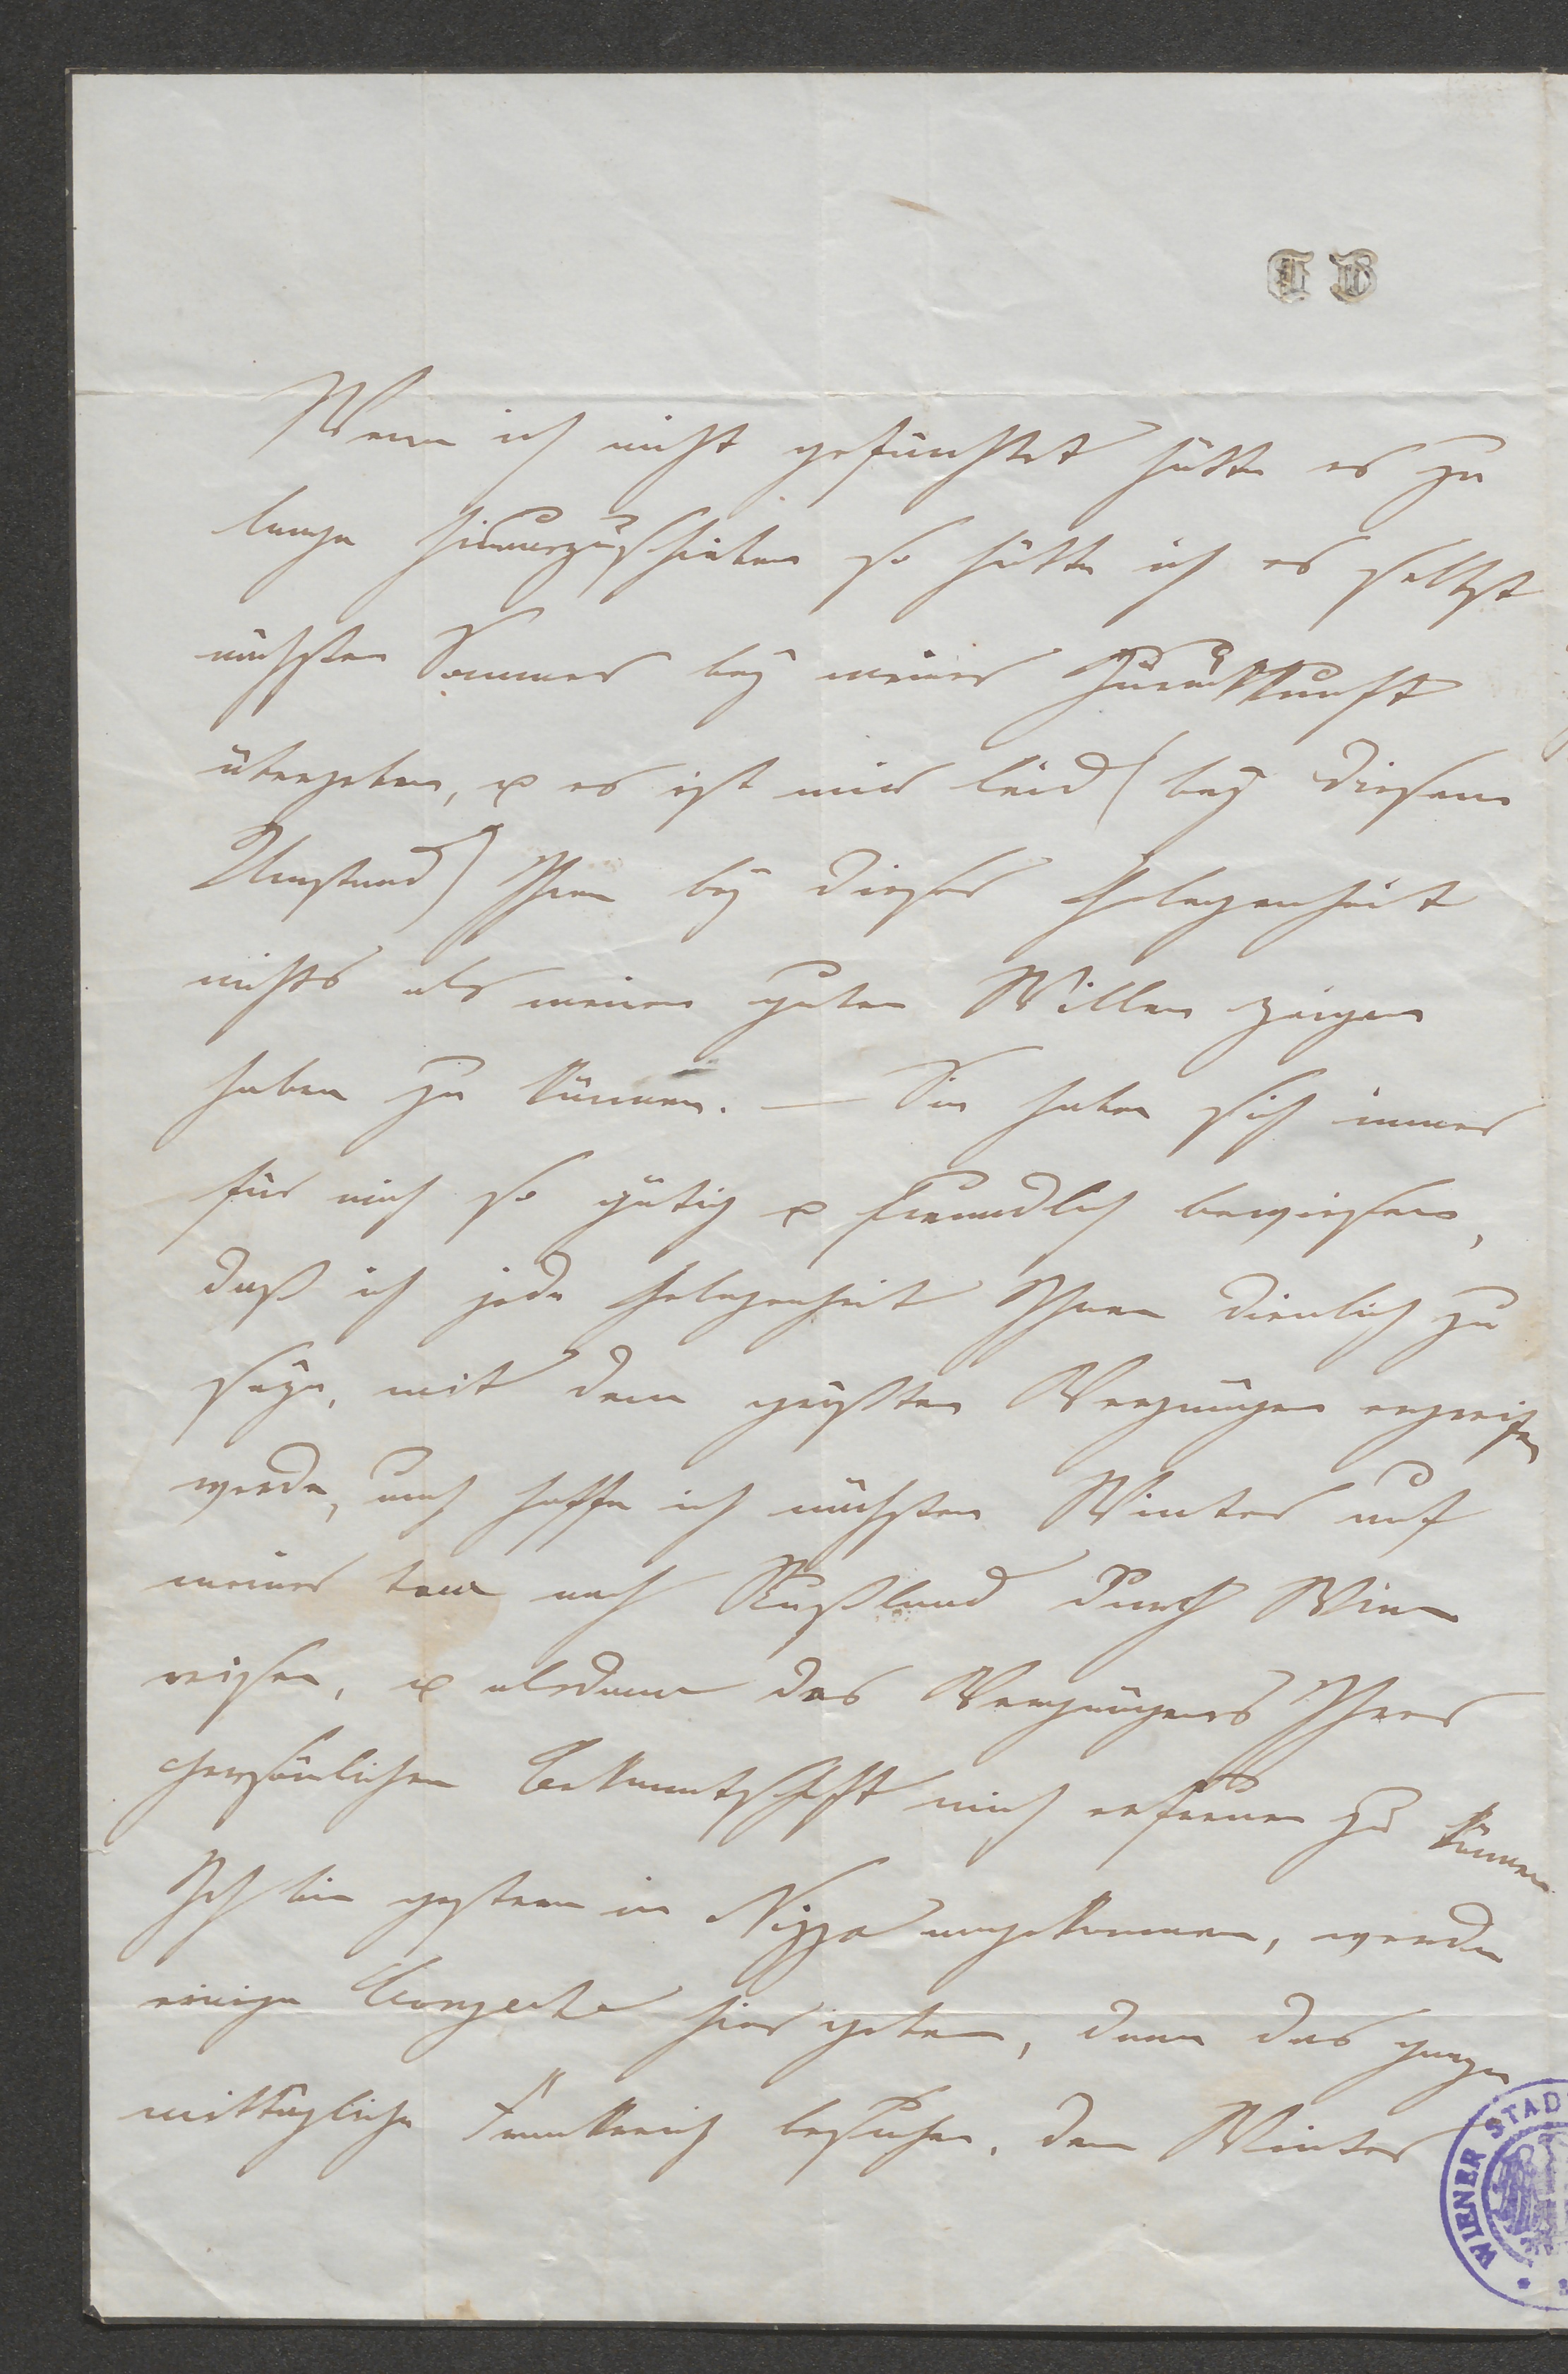 C B
Wenn ich nicht gefürchtet hätte es zu
lange hinauszuschieben so hätte ich es selbst
nächsten Sommer bey meiner Zurükkunft
übergeben, & es ist mir leid (bey diesem
Umstand) Ihnen bey dieser Gelegenheit
nichts als meinen guten Willen zeigen
haben zu können. — Sie haben sich immer
für mich so gütig & freundlich bewiesen,
daß ich jede Gelegenheit Ihnen dienlich zu
seyn, mit dem größten Vergnügen ergreifen
werde, auch hoffe ich nächsten Winter auf
meiner tour nach Rußland durch Wien
reisen, & alsdann des Vergnügens Ihrer
persönlichen Bekanntschaft mich erfreuen zu können
Ich bin gestern in Nizza angekommen, werde
einige Conzerte hier geben, dann das ganze
mittägliche Frankreich besuchen, den Winter
WIENER STAD